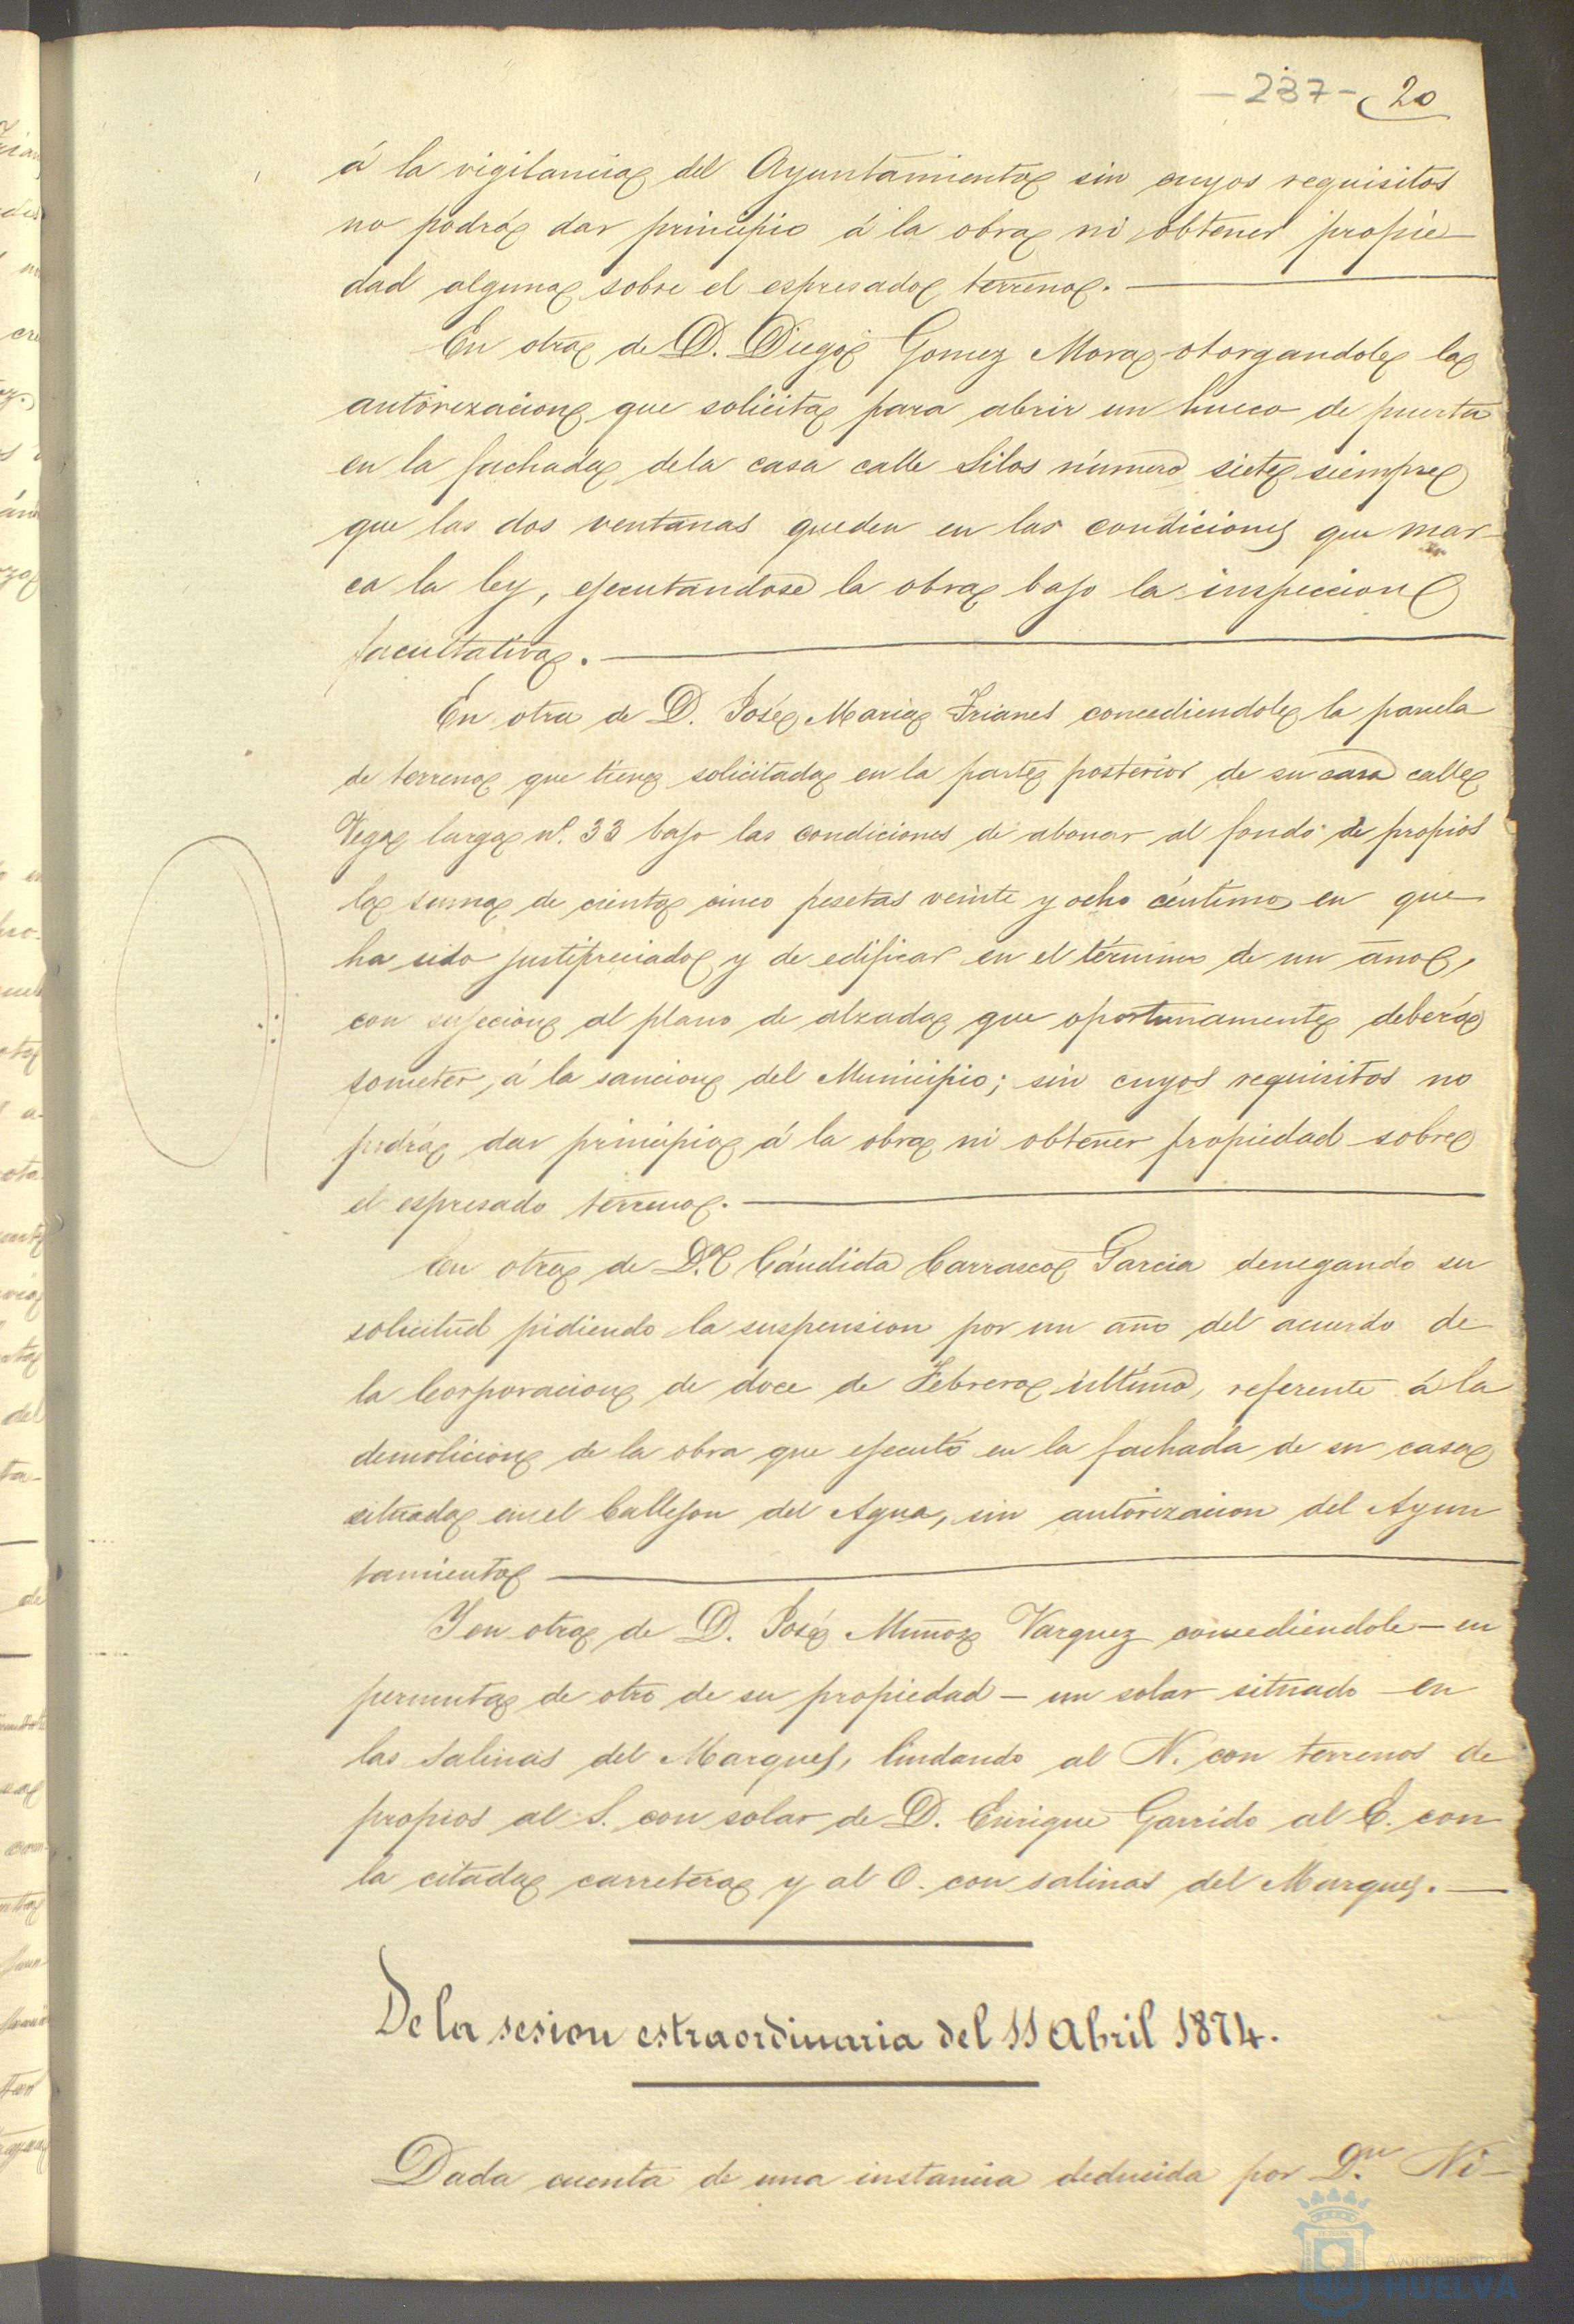 - 237 - 20
á la vigilancia del Ayuntamiento sin cuyos requisitos
no podrá dar principio á la obra ni obtener propie-
dad alguna sobre el espresado terreno.
En otra de D. Diego Gomez Mora otorgandole la
autorizacion que solicita para abrir un hueco de puerta
en la fachada dela casa calle Silos número siete siempre
que las dos ventanas queden en las condiciones que mar-
ca la ley, ejecutándose la obra bajo la inspeccion
facultativa.
En otra de D. José Maria Trianes concediendole la parcela
de terreno que tiene solicitada en la parte posterior de su casa calle
Vega larga nº. 33 bajo las condiciones de abonar al fondo de propios
la suma de ciento cinco pesetas veinte y ocho céntimos en que
ha sido justipreciado y de edificar en el término de un año,
con sujecion al plano de alzada que oportunamente deberá
someter á la sancion del Municipio; sin cuyos requisitos no
podrá dar principio á la obra ni obtener propiedad sobre
el espresado terreno.
En otra de D.ª Cándida Carrasco Garcia denegando su
solicitud pidiendo la suspension por un año del acuerdo de
la Corporacion de doce de Febrero último, referente á la
demolicion de la obra que ejecutó en la fachada de su casa
situada en el Callejon del Agua, sin autorizacion del Ayun
tamiento
Y en otra de D. José Muñoz Vazquez concediéndole - en
permuta de otro de su propiedad - un solar situado en
las Salinas del Marques, lindando al N. con terrenos de
propios al S. con solar de D. Enrique Garrido al E. con
la citada carretera y al O. con salinas del Marques.
De la sesion estraordinaria del 11 Abril 1874.
Dada cuenta de una instancia deducida por D.n Ni-
Ayuntamiento
HUELVA